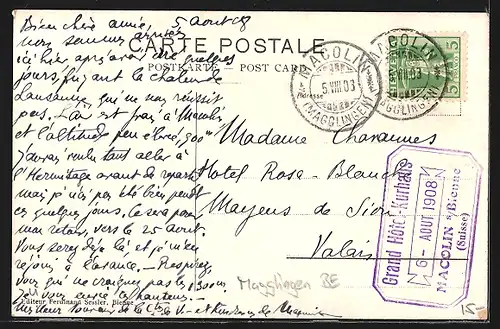 5 août 08
Bien chère amie,
nous sommes arrivés
CARTE POSTALE
POSTKARTE — POST CARD
ici hier après avoir été quelques
jours, fuyant la chaleur de
Lausanne qui ne nous réussit
pas. L'air est frais à Macolin
et l'altitude peu élevée, 900 m
J'aurais voulu tant aller à
l'Hermitage avant de
mais je n'ai pas été bien pendant
ces quelques jours. Ce sera pour
mon retour, vers le 25 août.
Vous serez déjà là et je m'en
réjouis à l'avance. — Respirez
vous qui ne craignez pas les 1300 m
je vous envie ces hauteurs.
Meilleur souvenir de la
Madame Chavannes
Hotel Rosa-Blanche
Mayens de Sion
Valais
MACOLIN
5.VIII.08
(MAGGLINGEN)
MACOLIN
VIII.08
MAGGLINGEN)
5
5
Grand Hôtel-Kurhaus
6 - AOUT 1908
MACOLIN s/Bienne
(Suisse)
Magglingen BE
Editeur Ferdinand Sessler, Bienne
15-